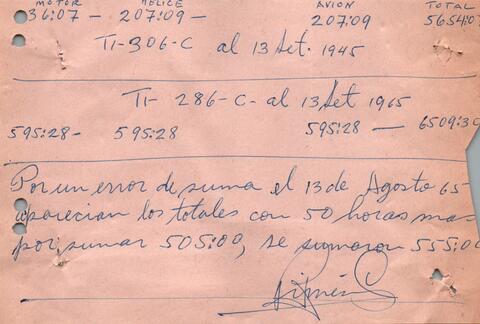 MOTOR HELICE AVION TOTAL
36:07 - 207:09 - 207:09 5654:0
TI-306-C al 13 Set. 1945
TI- 286-C- al 13 Set 1965
595:28- 595:28 595:28 — 6509:30
Por un error de suma el 13 de Agosto 65-
aparecian los totales con 50 horas mas
por sumar 505:00, se sumaron 555:00